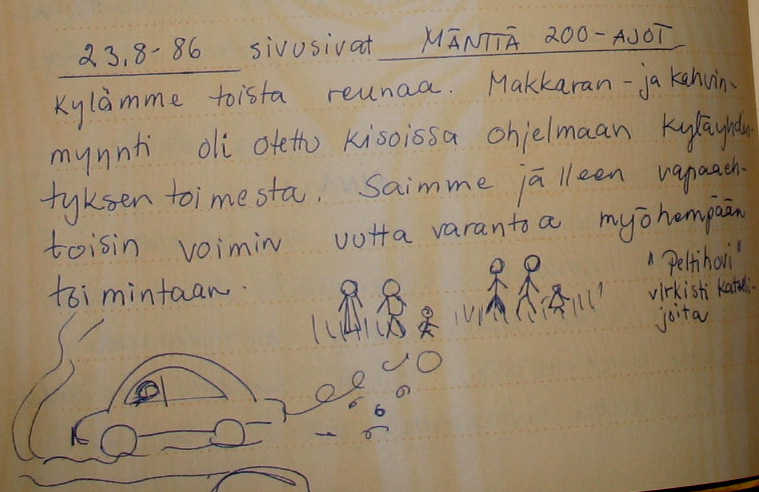 23.8-86 sivusivat MÄNTTÄ 200-AJOT
kylämme toista reunaa. Makkaran-ja kahvin-
myynti oli otettu kisoissa ohjelmaan kyläyhdis-
tyksen toimesta. Saimme jälleen vapaaeh-
toisin voimin uutta varantoa myöhempään
toimintaan.
"Peltihovi"
virkisti katseli-
joita